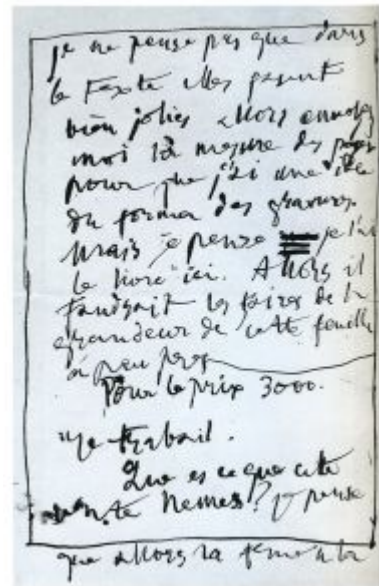 je ne pense pas que dans
le texte elles
bien jolies allors
moi la mesure des pages
pour que j'ai une idée
du forma des gravures
Mais je pense je l'ai
le livre ici. Allors il
faudrait les faires de la
grandeur de cette feuille
à peu pres
Pour le prix 3000.
Je trabail.
Que es ce que cette
je pense
que allors la